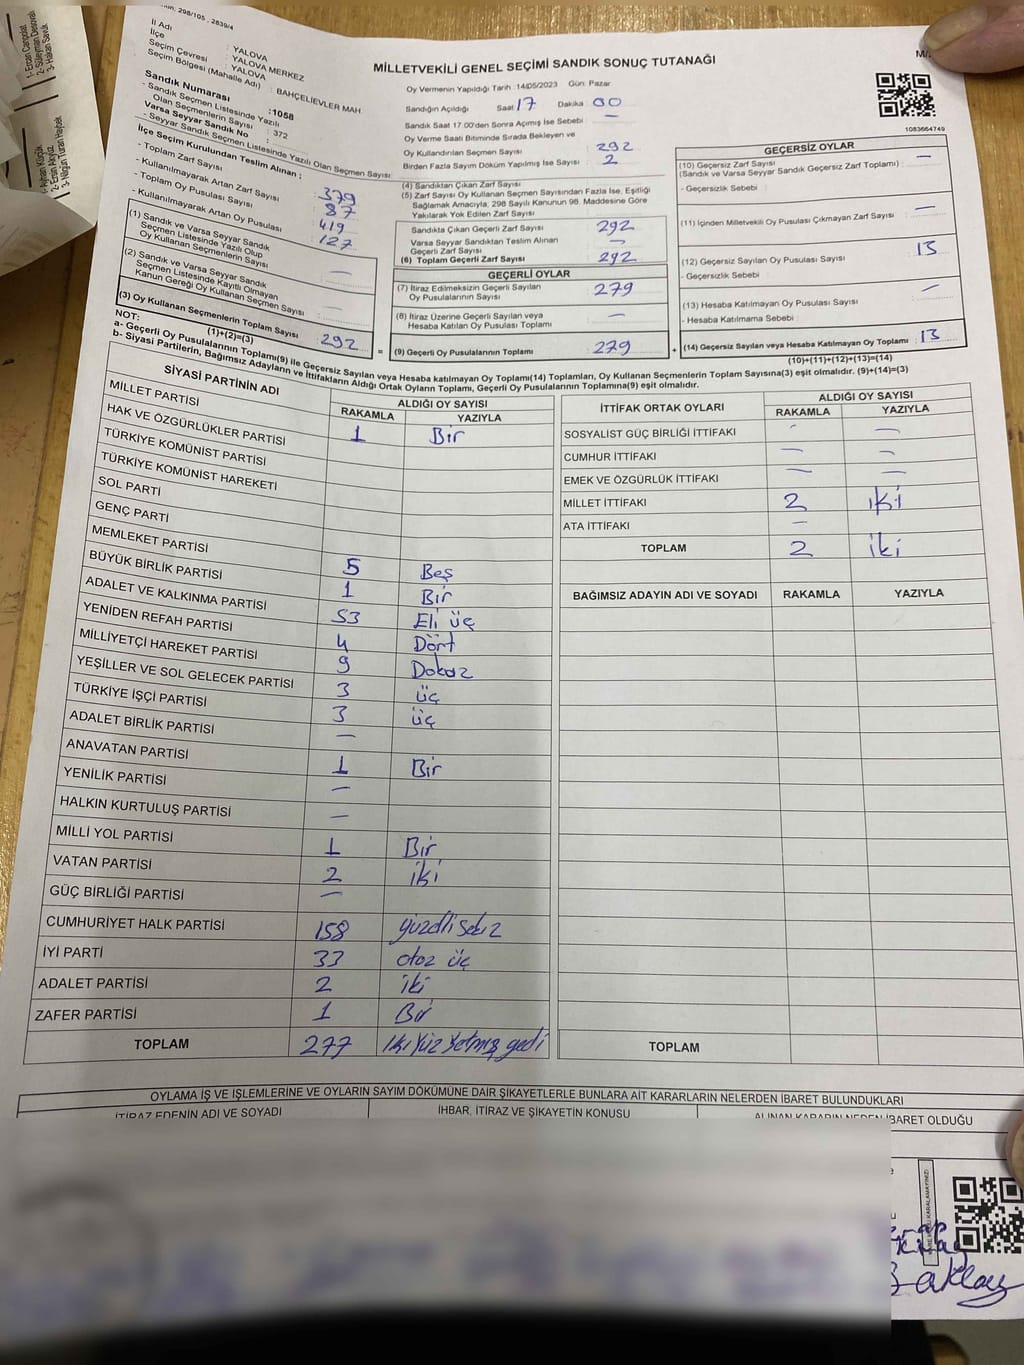 298/105 , 2839/4
İl Adı : YALOVA
İlçe : YALOVA MERKEZ
Seçim Çevresi : YALOVA
Seçim Bölgesi (Mahalle Adı) : BAHÇELİEVLER MAH
Sandık Numarası :1058
- Sandık Seçmen Listesinde Yazılı Olan Seçmenlerin Sayısı : 372
Varsa Seyyar Sandık No :
- Seyyar Sandık Seçmen Listesinde Yazılı Olan Seçmen Sayısı
İlçe Seçim Kurulundan Teslim Alınan ;
- Toplam Zarf Sayısı 379
- Kullanılmayarak Artan Zarf Sayısı 87
- Toplam Oy Pusulası Sayısı 419
- Kullanılmayarak Artan Oy Pusulası 127
(1) Sandık ve Varsa Seyyar Sandık Seçmen Listesinde Yazılı Olup Oy Kullanan Seçmenlerin Sayısı —
(2) Sandık ve Varsa Seyyar Sandık Seçmen Listesinde Kayıtlı Olmayan Kanun Gereği Oy Kullanan Seçmen Sayısı —
(3) Oy Kullanan Seçmenlerin Toplam Sayısı 292
(1)+(2)=(3)
MİLLETVEKİLİ GENEL SEÇİMİ SANDIK SONUÇ TUTANAĞI
Oy Vermenin Yapıldığı Tarih : 14/05/2023 Gün: Pazar
Sandığın Açıldığı Saat 17 Dakika 00
Sandık Saat 17.00'den Sonra Açımış İse Sebebi : —
Oy Verme Saati Bitiminde Sırada Bekleyen ve
Oy Kullandırılan Seçmen Sayısı : 292
Birden Fazla Sayım Döküm Yapılmış İse Sayısı : 2
(4) Sandıktan Çıkan Zarf Sayısı
(5) Zarf Sayısı Oy Kullanan Seçmen Sayısından Fazla İse, Eşitliği
Sağlamak Amacıyla, 298 Sayılı Kanunun 98. Maddesine Göre
Yakılarak Yok Edilen Zarf Sayısı
Sandıkta Çıkan Geçerli Zarf Sayısı 292
Varsa Seyyar Sandıktan Teslim Alınan Geçerli Zarf Sayısı —
(6) Toplam Geçerli Zarf Sayısı 292
GEÇERLİ OYLAR
(7) İtiraz Edilmeksizin Geçerli Sayılan Oy Pusulalarının Sayısı : 279
(8) İtiraz Üzerine Geçerli Sayılan veya Hesaba Katılan Oy Pusulası Toplamı : —
= (9) Geçerli Oy Pusulalarının Toplamı : 279
1083664749
GEÇERSİZ OYLAR
(10) Geçersiz Zarf Sayısı
(Sandık ve Varsa Seyyar Sandık Geçersiz Zarf Toplamı) : —
- Geçersizlik Sebebi :
(11) İçinden Milletvekili Oy Pusulası Çıkmayan Zarf Sayısı : —
(12) Geçersiz Sayılan Oy Pusulası Sayısı : 13
- Geçersizlik Sebebi :
(13) Hesaba Katılmayan Oy Pusulası Sayısı : —
- Hesaba Katılmama Sebebi :
+ (14) Geçersiz Sayılan veya Hesaba Katılmayan Oy Toplamı : 13
(10)+(11)+(12)+(13)=(14)
NOT:
a- Geçerli Oy Pusulalarının Toplamı(9) ile Geçersiz Sayılan veya Hesaba katılmayan Oy Toplamı(14) Toplamları, Oy Kullanan Seçmenlerin Toplam Sayısına(3) eşit olmalıdır. (9)+(14)=(3)
b- Siyasi Partilerin, Bağımsız Adayların ve İttifakların Aldığı Ortak Oyların Toplamı, Geçerli Oy Pusulalarının Toplamına(9) eşit olmalıdır.
SİYASİ PARTİNİN ADI ALDIĞI OY SAYISI
RAKAMLA YAZIYLA
MİLLET PARTİSİ 1 Bir
HAK VE ÖZGÜRLÜKLER PARTİSİ
TÜRKİYE KOMÜNİST PARTİSİ
TÜRKİYE KOMÜNİST HAREKETİ
SOL PARTİ
GENÇ PARTİ
MEMLEKET PARTİSİ 5 Beş
BÜYÜK BİRLİK PARTİSİ 1 Bir
ADALET VE KALKINMA PARTİSİ 53 Eli üç
YENİDEN REFAH PARTİSİ 4 Dört
MİLLİYETÇİ HAREKET PARTİSİ 9 Dokuz
YEŞİLLER VE SOL GELECEK PARTİSİ 3 üç
TÜRKİYE İŞÇİ PARTİSİ 3 üç
ADALET BİRLİK PARTİSİ —
ANAVATAN PARTİSİ 1 Bir
YENİLİK PARTİSİ —
HALKIN KURTULUŞ PARTİSİ —
MİLLİ YOL PARTİSİ 1 Bir
VATAN PARTİSİ 2 iki
GÜÇ BİRLİĞİ PARTİSİ —
CUMHURİYET HALK PARTİSİ 158
İYİ PARTİ 33 otoz üç
ADALET PARTİSİ 2 iki
ZAFER PARTİSİ 1 Bir
TOPLAM 277 İki Yüz Yetmiş yedi
İTTİFAK ORTAK OYLARI ALDIĞI OY SAYISI
RAKAMLA YAZIYLA
SOSYALİST GÜÇ BİRLİĞİ İTTİFAKI — —
CUMHUR İTTİFAKI — —
EMEK VE ÖZGÜRLÜK İTTİFAKI — —
MİLLET İTTİFAKI 2 iki
ATA İTTİFAKI —
TOPLAM 2 iki
BAĞIMSIZ ADAYIN ADI VE SOYADI RAKAMLA YAZIYLA
TOPLAM
OYLAMA İŞ VE İŞLEMLERİNE VE OYLARIN SAYIM DÖKÜMÜNE DAİR ŞİKAYETLERLE BUNLARA AİT KARARLARIN NELERDEN İBARET BULUNDUKLARI
İTİRAZ EDENİN ADI VE SOYADI İHBAR, İTİRAZ VE ŞİKAYETİN KONUSU ALINAN KARARIN NEDEN İBARET OLDUĞU